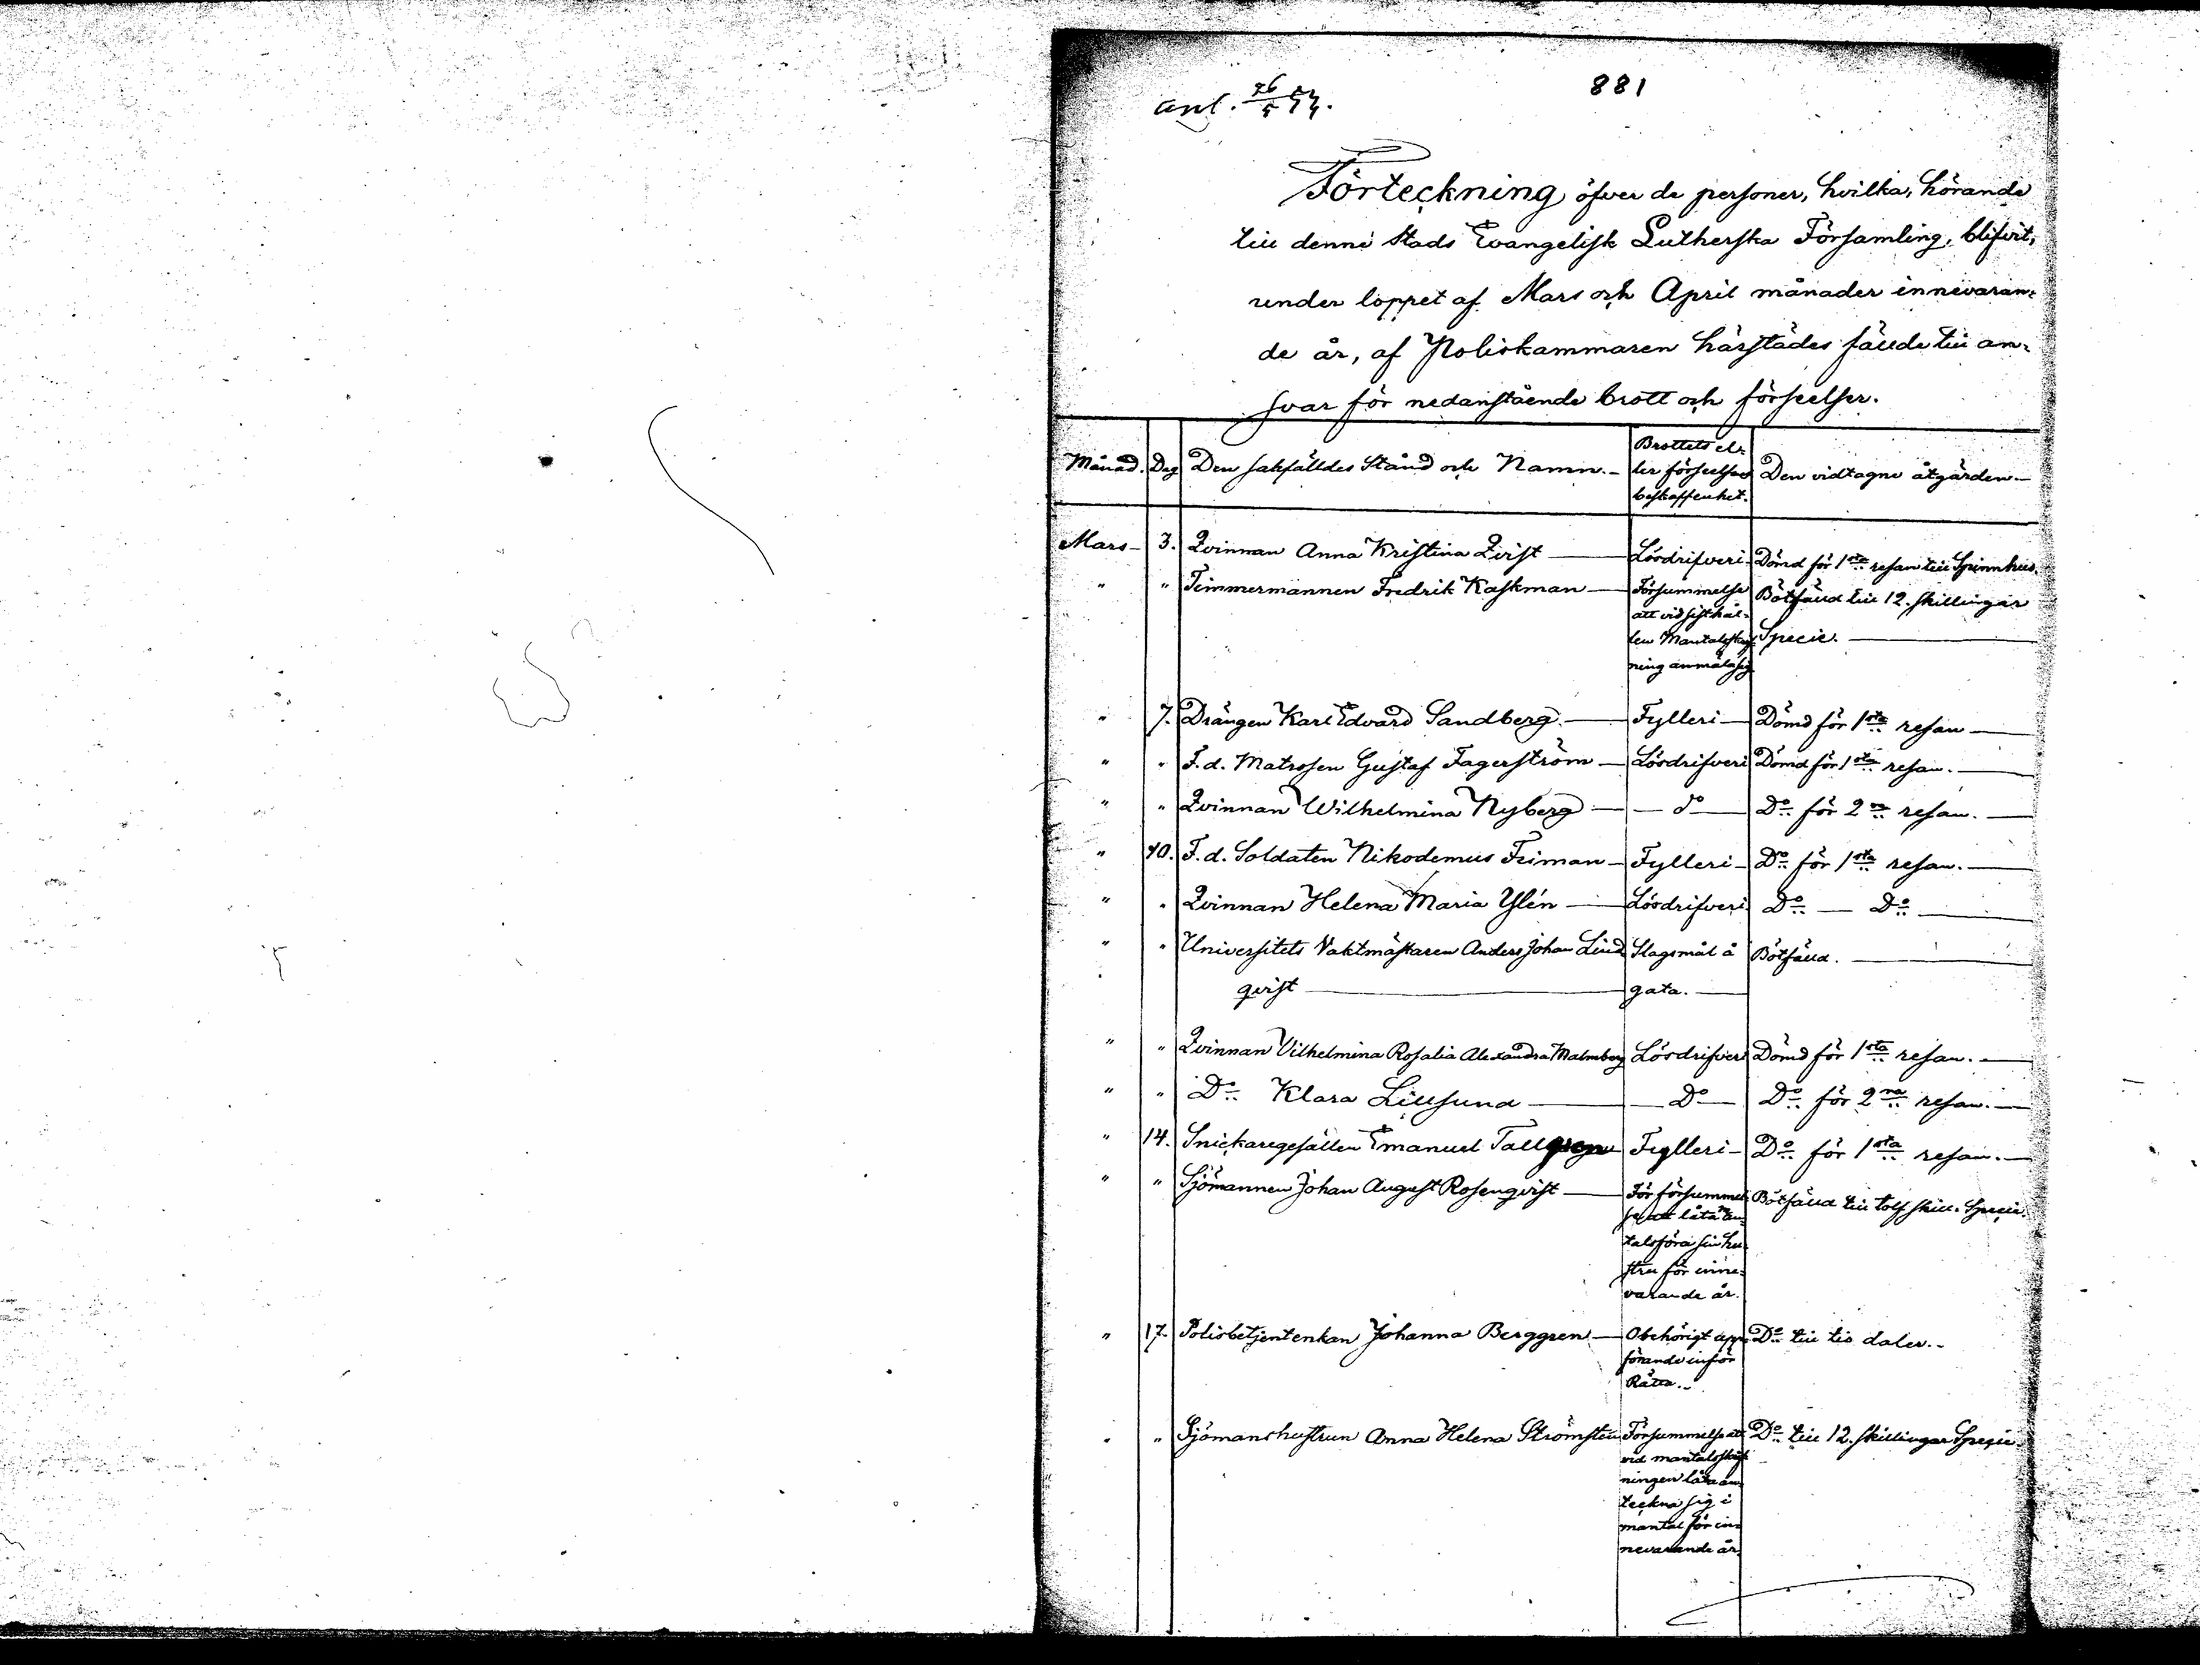 881
anl. 26/5 57.
Förteckning öfver de personer, hvilka, hörande
till denne Stads Evangelisk Lutherska Församling, blifvit,
under loppet af Mars och April månader innevaran-
de år, af Poliskammaren härstädes fällde till an-
svar för nedanstående brott och förseelser.
Månad. Dag Den sakfälldes Stånd och Namn. Brottets el-
ler förseelsens
beskaffenhet. Den vidtagne åtgärden.
Mars 3. Qvinnan Anna Kristina Qvist Lösdrifveri Dömd för 1sta resan till Spinnhus.
" " Timmermannen Fredrik Kaskman Försummelse Bötfälld till 12. skillingar
att vid sist hål- Specie.
len Mantalsskrif-
ning anmäla sig
" 7. Drängen Karl Edvard Sandberg. Fylleri Dömd för 1sta resan
" " F.d. Matrosen Gustaf Fagerström Lösdrifveri Dömd för 1sta resan.
" " Qvinnan Wilhelmina Nyberg do Do för 2ra resan.
" 10. F.d. Soldaten Nikodemus Friman Fylleri Do för 1sta resan.
" " Qvinnan Helena Maria Ylén Lösdrifveri Do Do
" " Universitets Vaktmästaren Anders Johan Lind Slagsmål å Bötfälld.
qvist gata.
" " Qvinnan Vilhelmina Rosalia Alexandra Malmberg Lösdrifveri Dömd för 1sta resan.
" " Do Klara Lillsund Do Do för 2ra resan.
" 14. Snickaregesällen Emanuel Tallgren Fylleri Do för 1sta resan.
" " Sjömannen Johan August Rosenqvist För försummel- Bötfälld till tolf skill. Specie.
se att låta man-
talsföra sin hu-
stru för inne-
varande år.
" 17. Polisbetjentenkan Johanna Berggren Obehörigt upp- Do till tio daler.
förande inför
Rätta.
" " Sjömanshustrun Anna Helena Strömsten Försummelse att Do till 12. skillingar Specie.
vid mantalsskrif-
ningen låta an-
teckna sig i
mantal för in-
nevarande år.